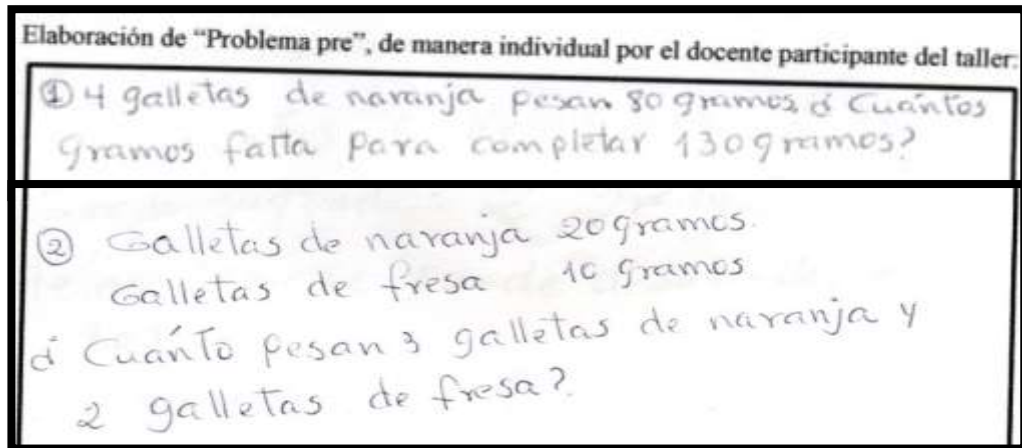 Elaboración de “Problema pre”, de manera individual por el docente participante del taller:
① 4 galletas de naranja pesan 80 gramos ¿ Cuántos
gramos falta para completar 130 gramos?
② Galletas de naranja 20 gramos.
Galletas de fresa 10 gramos
¿ Cuánto pesan 3 galletas de naranja y
2 galletas de fresa?